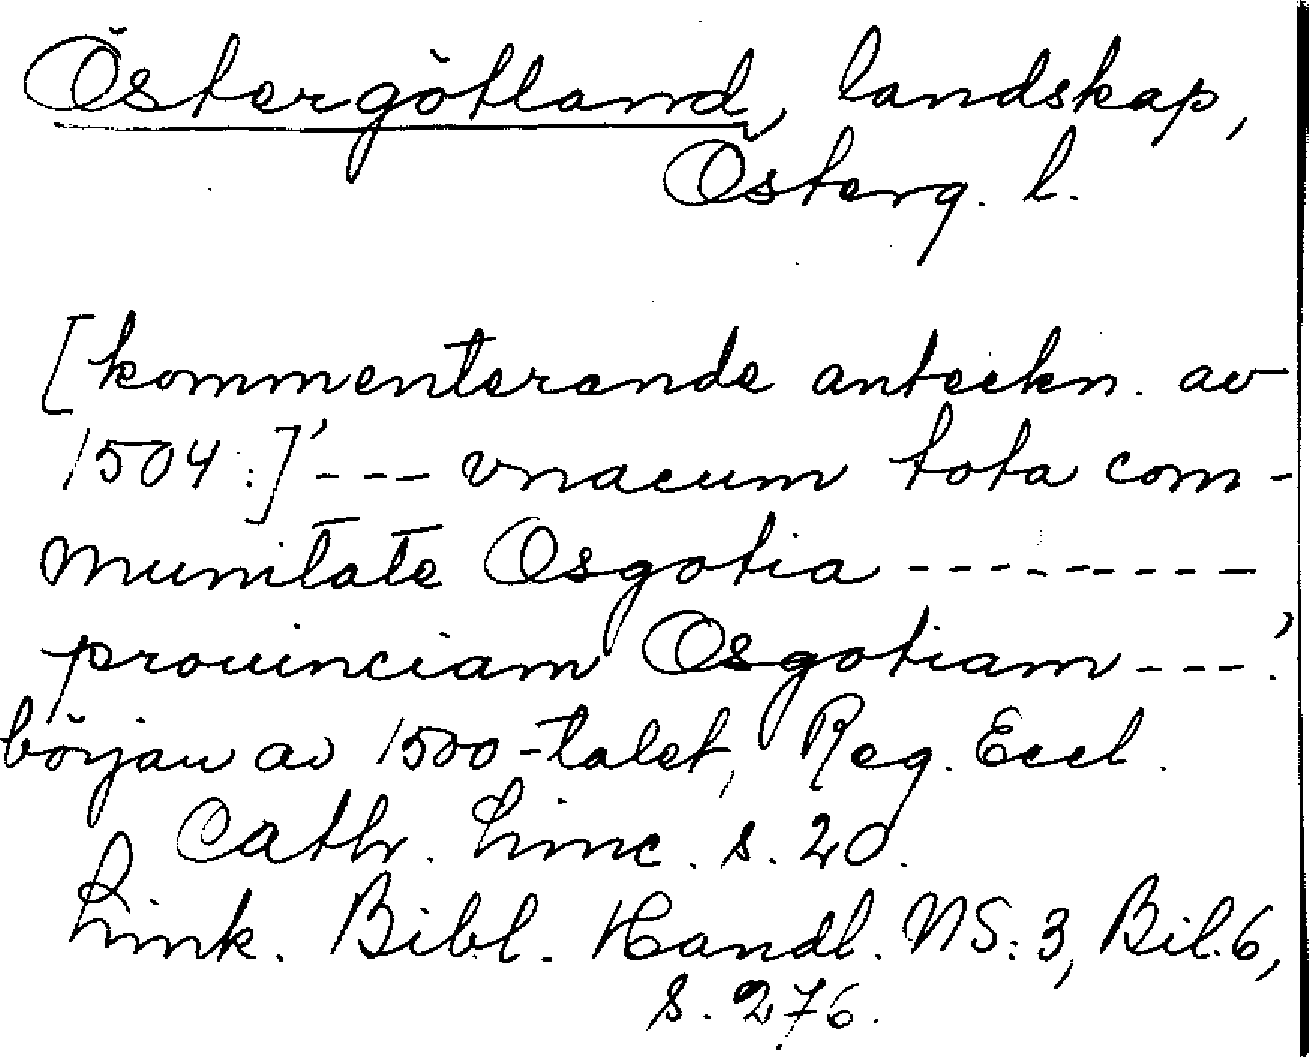 Östergötland, landskap,
Österg. l.
[kommenterande anteckn. av
1504:]' --- vnacum tota com-
munitate Osgotia ---------
prouinciam Osgotiam ---'.
början av 1500-talet, Reg. Eccl.
Cath. Linc. s. 20.
Link. Bibl. Handl. NS: 3, Bil. 6,
s. 276.